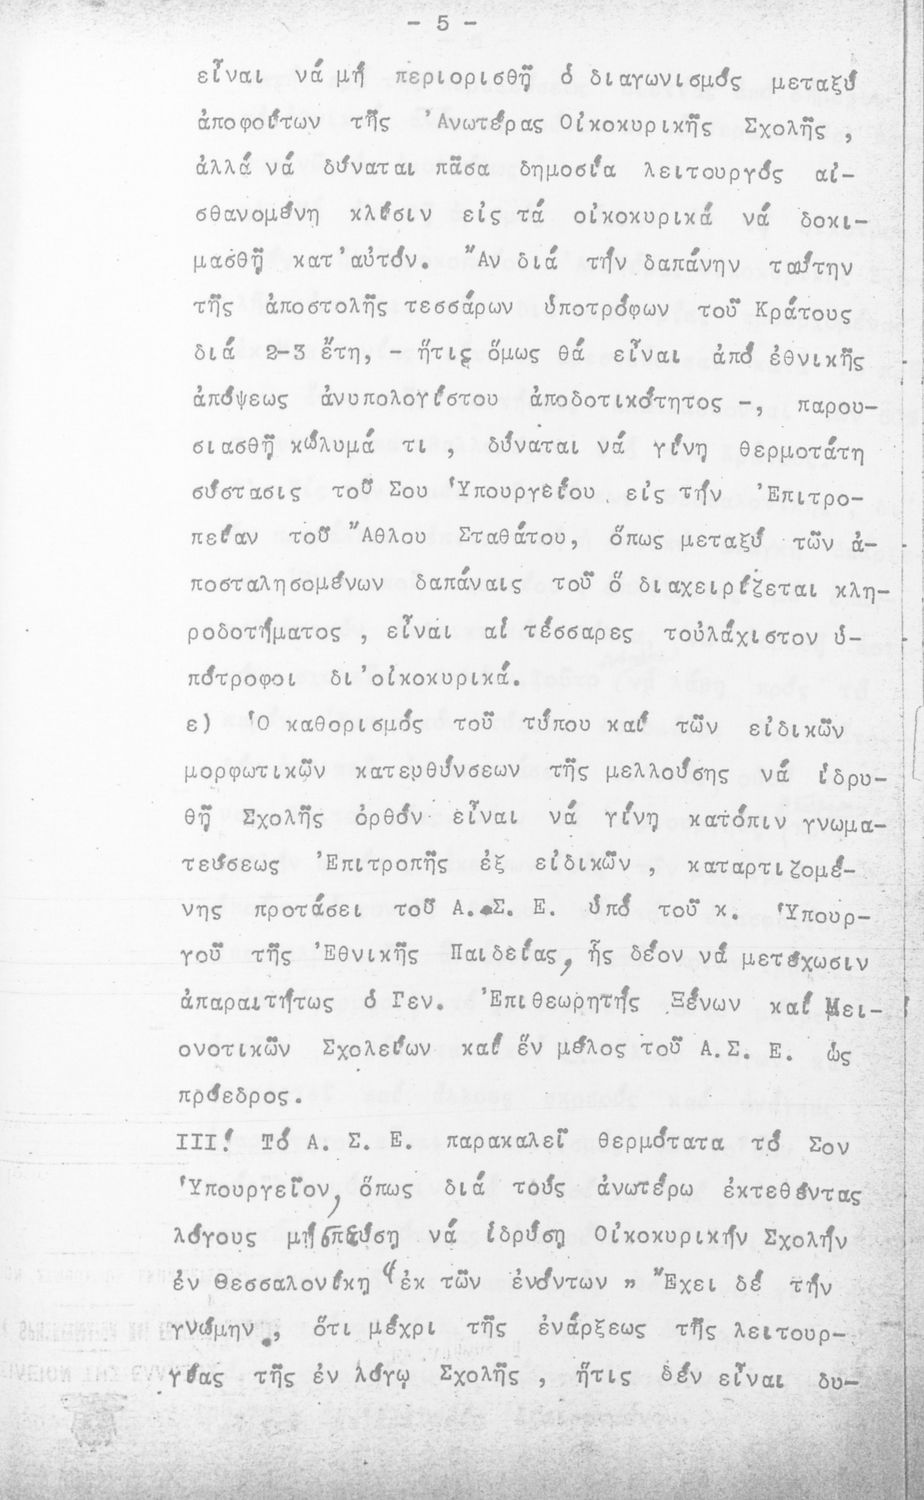 - 5 -
εἶναι νά μή περιορισθῇ ὁ διαγωνισμός μεταξύ
ἀποφοίτων τῆς Ἀνωτέρας Οἰκοκυρικῆς Σχολῆς ,
ἀλλά νά δύναται πᾶσα δημοσία λειτουργός αἰ-
σθανομένη κλίσιν εἰς τά οἰκοκυρικά νά δοκι-
μασθῇ κατ' αὐτόν. Ἄν διά τήν δαπάνην ταύτην
τῆς ἀποστολῆς τεσσάρων ὑποτρόφων τοῦ Κράτους
διά 2-3 ἔτη, - ἥτις ὅμως θά εἶναι ἀπό ἐθνικῆς
ἀπόψεως ἀνυπολογίστου ἀποδοτικότητος -, παρου-
σιασθῇ κώλυμά τι , δύναται νά γίνῃ θερμοτάτη
σύστασις τοῦ Σου Ὑπουργείου εἰς τήν Ἐπιτρο-
πείαν τοῦ Ἄθλου Σταθάτου, ὅπως μεταξύ τῶν ἀ-
ποσταλησομένων δαπάναις τοῦ ὅ διαχειρίζεται κλη-
ροδοτήματος , εἶναι αἱ τέσσαρες τοὐλάχιστον ὑ-
πότροφοι δι' οἰκοκυρικά.
ε) Ὁ καθορισμός τοῦ τύπου καί τῶν εἰδικῶν
μορφωτικῶν κατευθύνσεων τῆς μελλούσης νά ἱδρυ-
θῇ Σχολῆς ὀρθόν εἶναι νά γίνῃ κατόπιν γνωμα-
τεύσεως Ἐπιτροπῆς ἐξ εἰδικῶν , καταρτιζομέ-
νης προτάσει τοῦ Α. Σ. Ε. ὑπό τοῦ κ. Ὑπουρ-
γοῦ τῆς Ἐθνικῆς Παιδείας, ἧς δέον νά μετέχωσιν
ἀπαραιτήτως ὁ Γεν. Ἐπιθεωρητής Ξένων καί Μει-
ονοτικῶν Σχολείων καί ἕν μέλος τοῦ Α.Σ. Ε. ὡς
πρόεδρος.
III. Τό Α. Σ. Ε. παρακαλεῖ θερμότατα τό Σον
Ὑπουργεῖον, ὅπως διά τούς ἀνωτέρω ἐκτεθέντας
λόγους μή σπεύσῃ νά ἱδρύσῃ Οἰκοκυρικήν Σχολήν
ἐν Θεσσαλονίκῃ "ἐκ τῶν ἐνόντων" Ἔχει δέ τήν
γνώμην , ὅτι μέχρι τῆς ἐνάρξεως τῆς λειτουρ-
γίας τῆς ἐν λόγῳ Σχολῆς , ἥτις δέν εἶναι δυ-